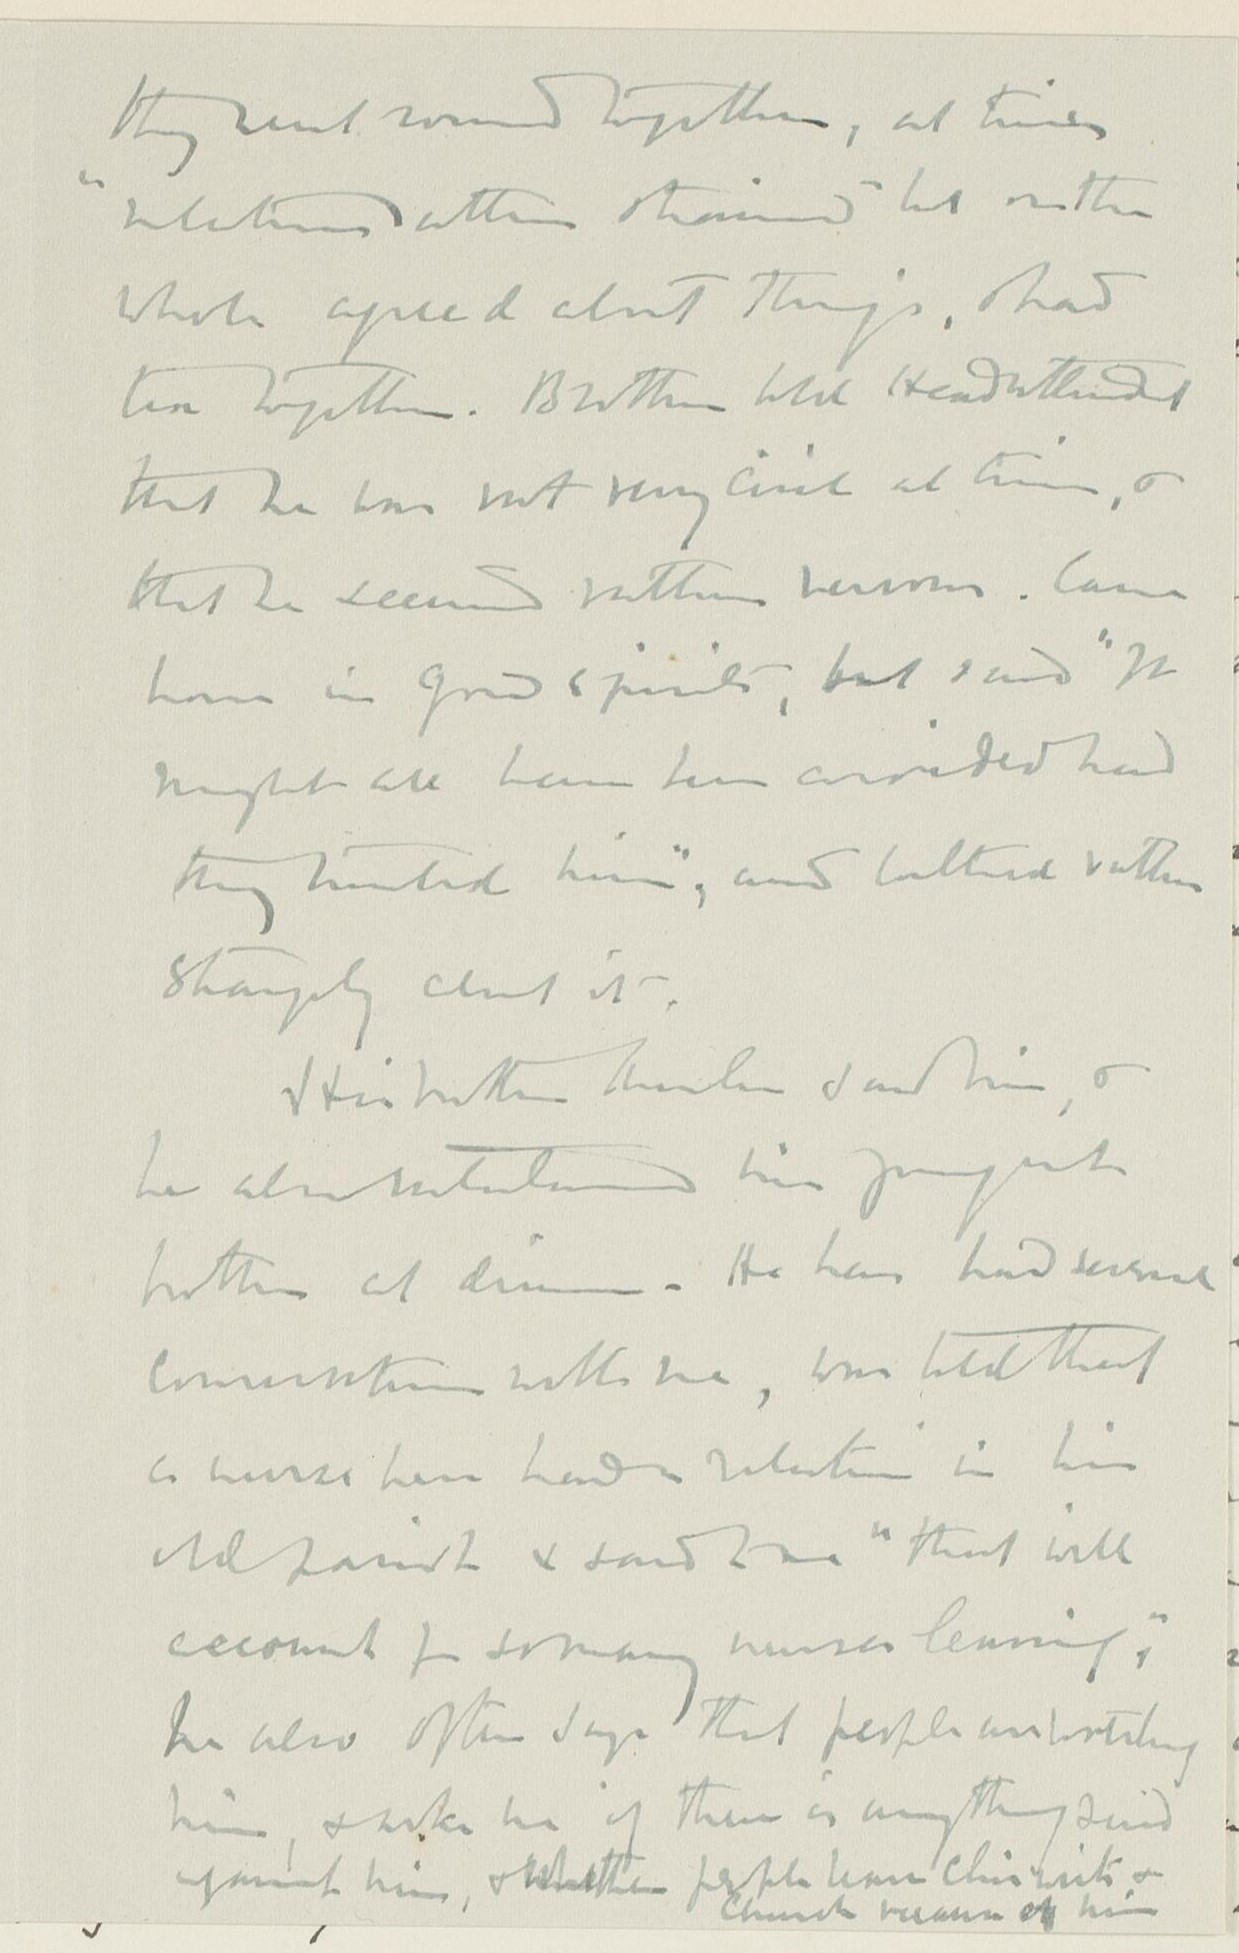 they went round together, at times
"relations rather strained" but on the
whole agreed about things, & had
tea together. Brother told Head Attendant
that he was not very civil at times, &
that he seemed rather nervous. Came
home in good spirits, but said "It
might all have been avoided had
they trusted him", and talked rather
strangely about it.
His brother thanked him, &
he also entertained his youngest
brother at dinner. He has had several
conversations with me, was told that
a nurse here had a relation in his
old parish & said to me "that will
account for so many nurses leaving",
he also often says that people are watching
him, & asks me if there is anything said
against him, & whether people leave Chiswick &
Church because of him